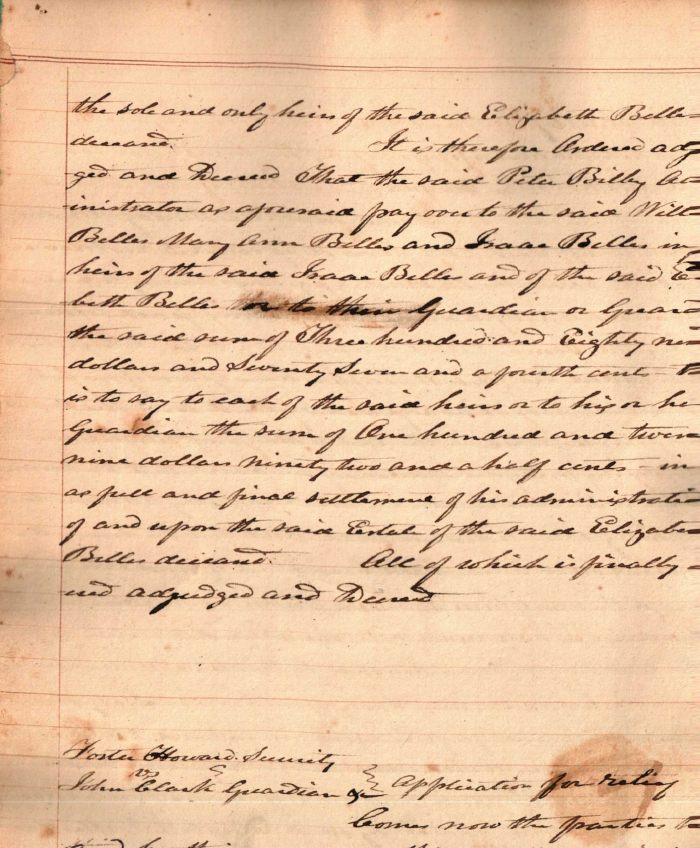 the sole and only heirs of the said Elizabeth Belles
deceased. It is therefore Ordered adj
ged and Decreed That the said Peter Bilby Ad
inistrator as aforesaid pay over to the said Will
Belles Mary Ann Belles and Isaac Belles in
heirs of the said Isaac Belles and of the said E
beth Belles or to their Guardian or Guar
the said sum of Three hundred and Eighty ni
dollars and Seventy Seven and a fourth cents
is to say to each of the said heirs or to his or he
Guardian the sum of One hundred and twen
nine dollars ninety two and a half cents - in
as full and final settlement of his administrati
of and upon the said Estate of the said Elizabe
Belles deceased. All of which is finally
ered adjudged and Decreed
Foster Howard Security
vs
John Clark Guardian &c Application for relief
Comes now the parties